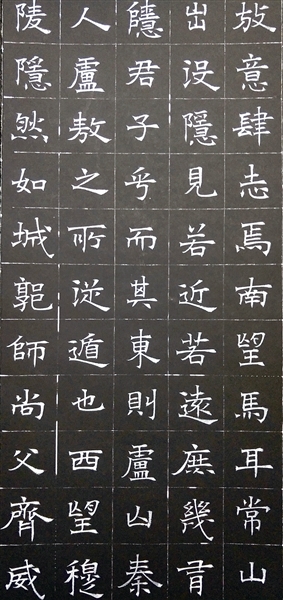 放意肆志焉南望馬耳常山
出沒隱見若近若遠庶幾有
隱君子乎而其東則盧山秦
人盧敖之所從遁也西望穆
陵隱然如城郭師尚父齊威